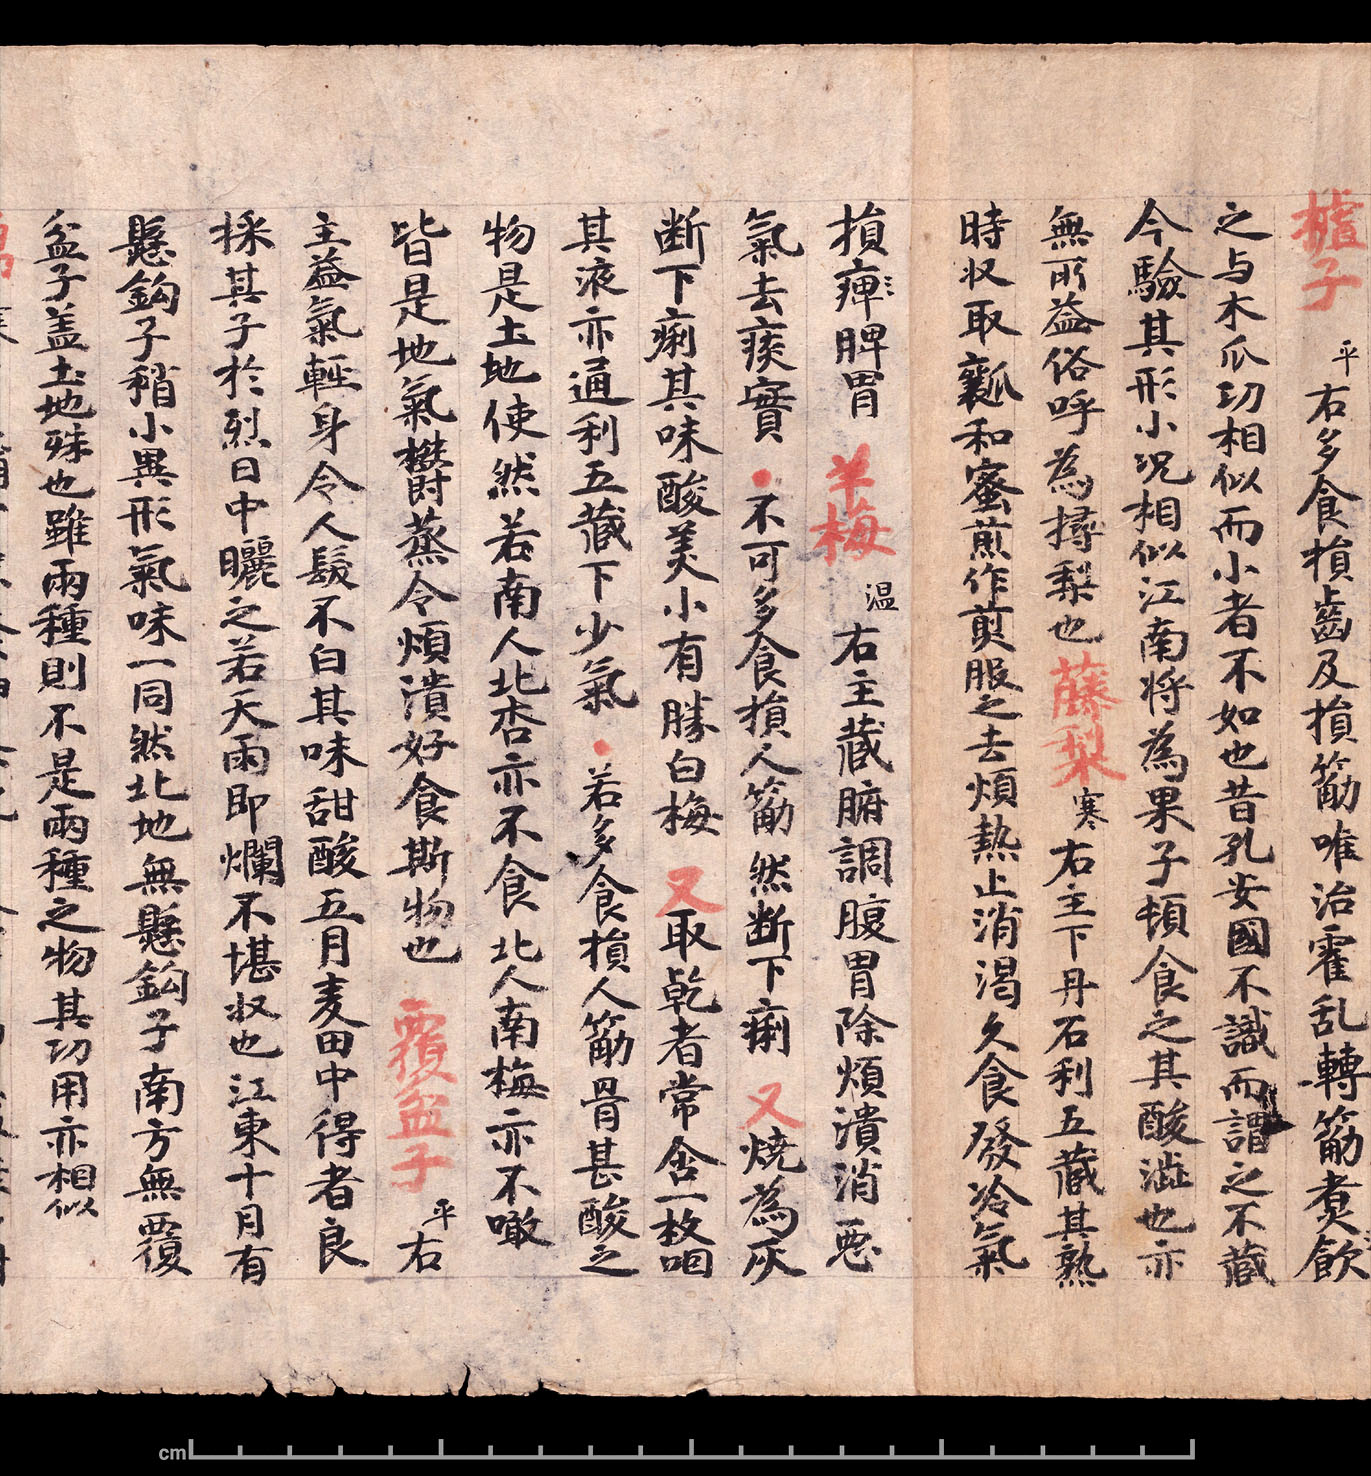 樝子平右多食損齒及損筋唯治霍乱轉筋煮飲
之与木瓜功相似而小者不如也昔孔安國不識而謂之不藏
今驗其形小况相似江南將為果子頓食之其酸澁也亦
無所益俗呼為㯆梨也藤梨寒右主下丹石利五藏其熟
時收取瓤和蜜煎作煎服之去煩熱止消渴久食發冷氣
損痺脾胃羊梅温右主藏腑調腹胃除煩潰消惡
氣去痰實不可多食損人筋然断下痢又燒為灰
断下痢其味酸美小有勝白梅又取乾者常含一枚咽
其液亦通利五藏下少氣若多食損人筋骨甚酸之
物是土地使然若南人北杏亦不食北人南梅亦不噉
皆是地氣欝蒸令煩潰好食斯物也覆盆子平右
主益氣輕身令人髮不白其味甜酸五月麦田中得者良
採其子於烈日中曬之若天雨即爛不堪收也江東十月有
懸鈎子稍小異形氣味一同然北地無懸鈎子南方無覆
盆子盖土地殊也雖兩種則不是兩種之物其功用亦相似